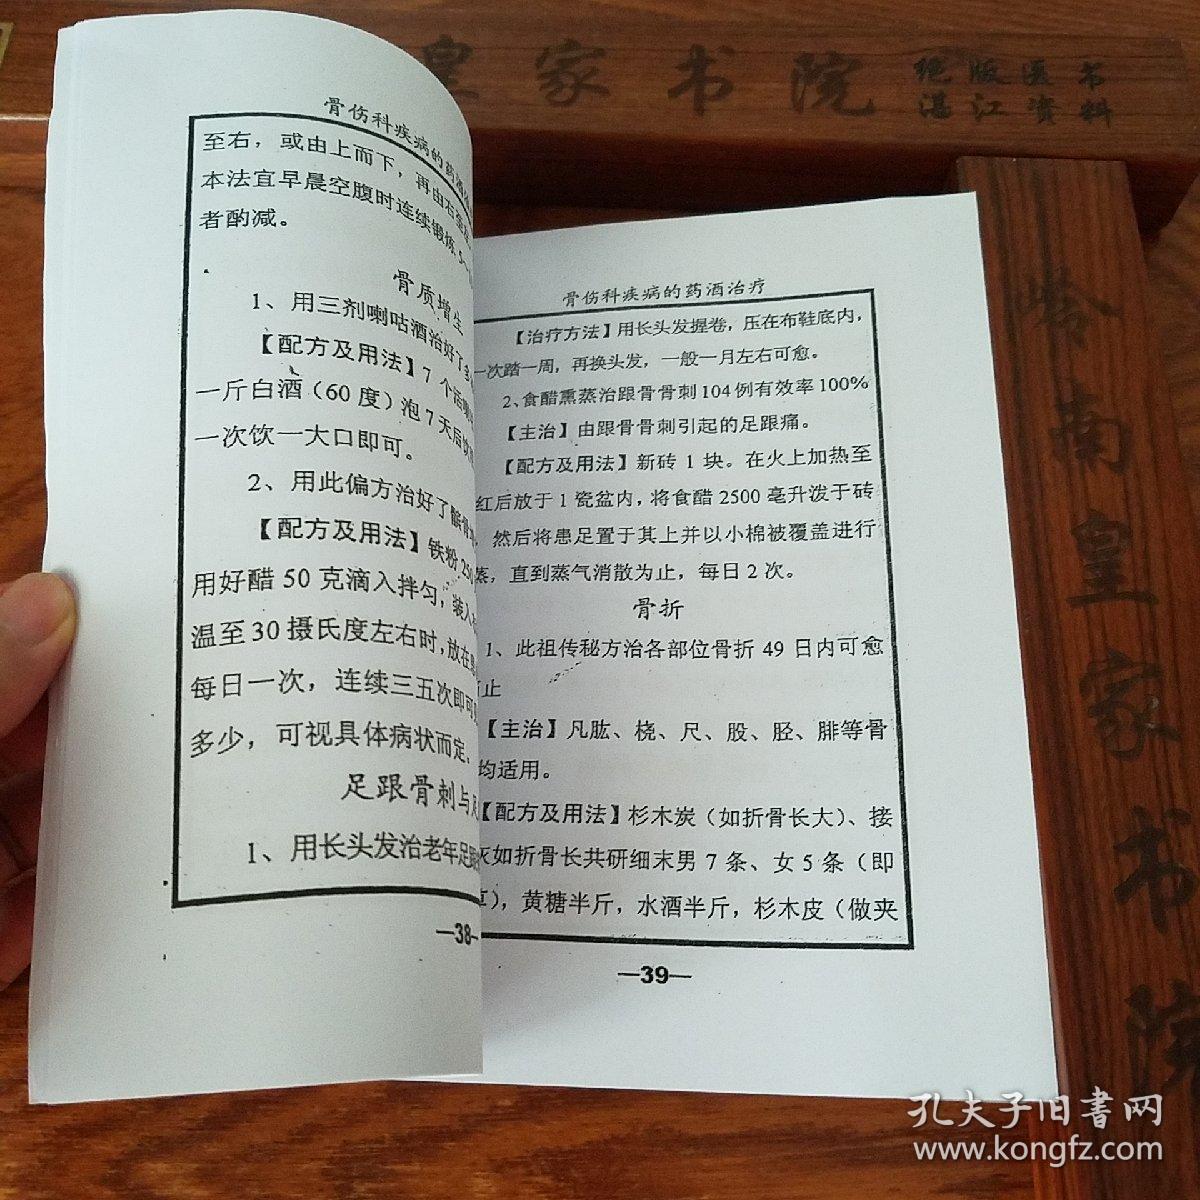 皇家书院
绝版医书
湛江资料
岭南皇家书院
骨伤科疾病的药酒
至右，或由上而下，再由右至左
本法宜早晨空腹时连续锻炼5～
者酌减。
骨质增生
1、用三剂喇咕酒治好了多
【配方及用法】7个活喇
一斤白酒（60度）泡7天后饮
一次饮一大口即可。
2、用此偏方治好了髌骨
【配方及用法】铁粉250
用好醋50克滴入拌匀，装入
温至30摄氏度左右时，放在患
每日一次，连续三五次即可
多少，可视具体病状而定、
足跟骨刺与
1、用长头发治老年足跟
—38—
骨伤科疾病的药酒治疗
【治疗方法】用长头发握卷，压在布鞋底内，
一次踏一周，再换头发，一般一月左右可愈。
2、食醋熏蒸治跟骨骨刺104例有效率100%
【主治】由跟骨骨刺引起的足跟痛。
【配方及用法】新砖1块。在火上加热至
红后放于1瓷盆内，将食醋2500毫升泼于砖
，然后将患足置于其上并以小棉被覆盖进行
蒸，直到蒸气消散为止，每日2次。
骨折
1、此祖传秘方治各部位骨折49日内可愈
止
【主治】凡肱、桡、尺、股、胫、腓等骨
均适用。
【配方及用法】杉木炭（如折骨长大）、接
灰如折骨长共研细末男7条、女5条（即
），黄糖半斤，水酒半斤，杉木皮（做夹
—39—
孔夫子旧書网
www.kongfz.com